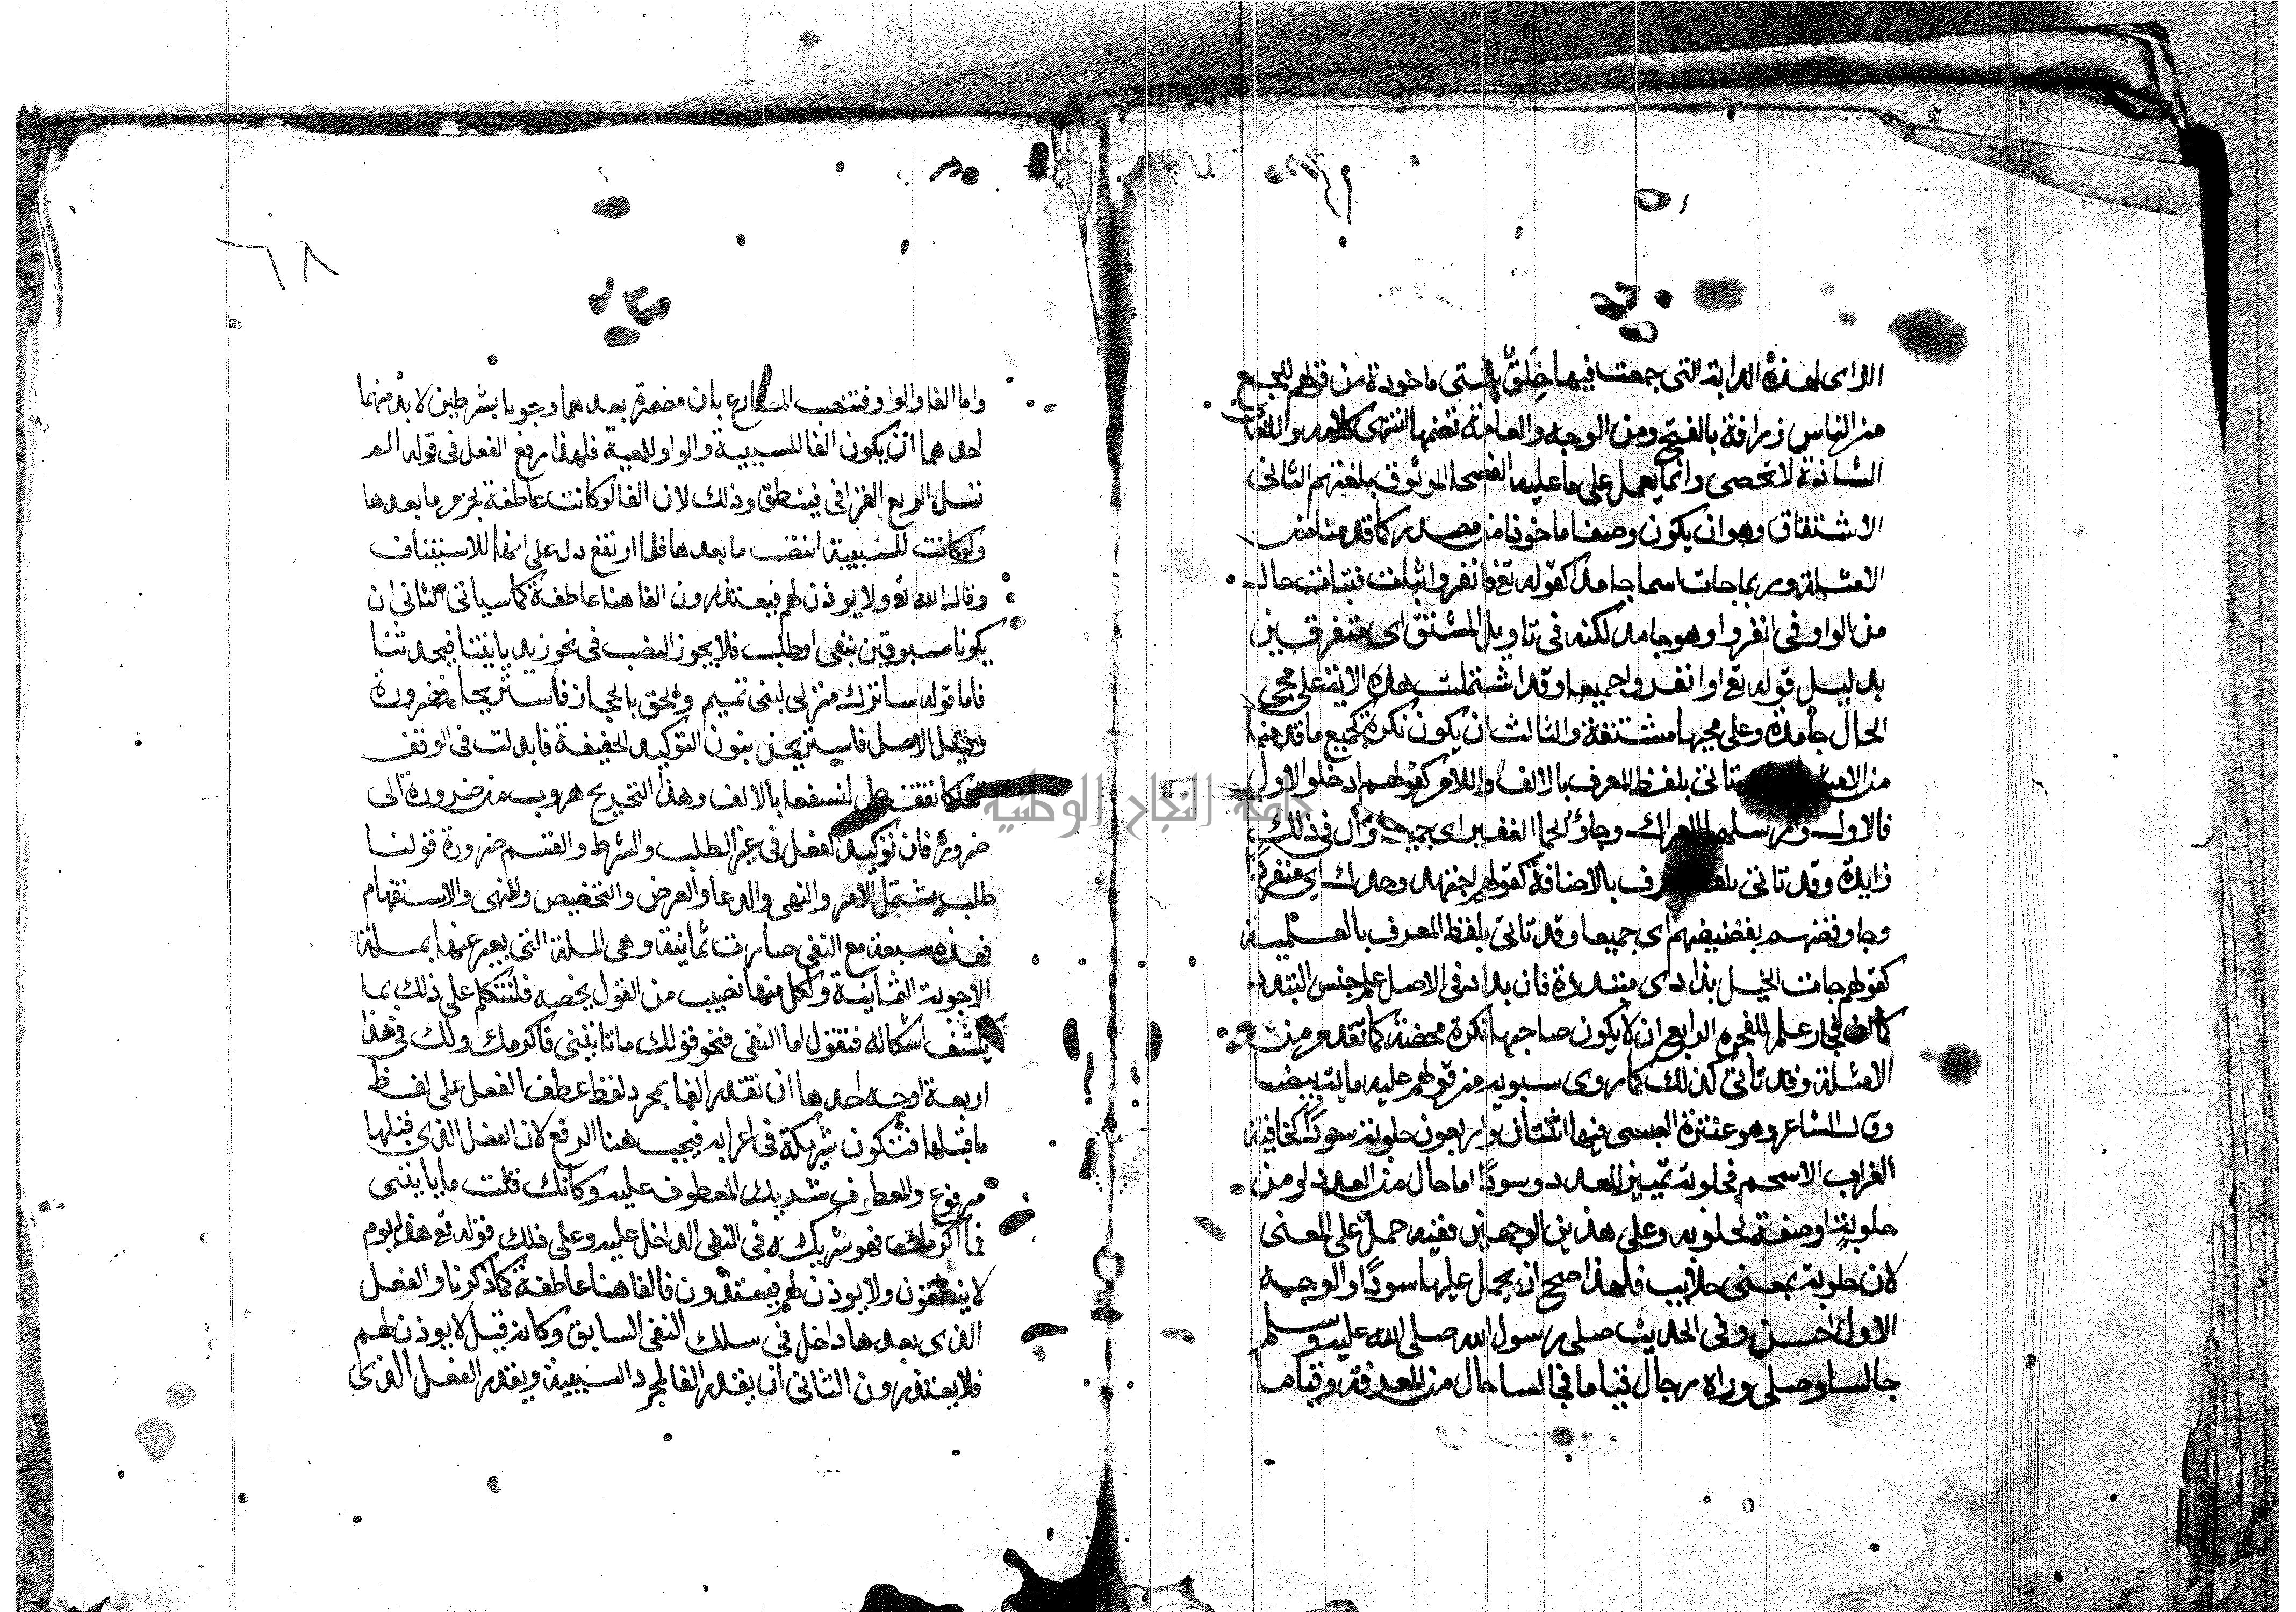 الزاى لهذه الدابة التى جمعت فيها خلق شتى ماخوذة من قولهم للجمع
من الناس زرافة بالفتح ومن الوجه والعامة تضمها انتهى كلامه واللغات
الشاذة لا تحصى وانما يعمل على ما عليه الفصحا الموثوق بلغتهم الثانى
الاشتقاق وهو ان يكون وصفا ماخوذا من مصدر كما قدمنا من
الامثلة وربما جات اسما جامدا كقوله تع فانفروا ثبات فثبات حال
من الواو فى انفروا وهو جامد لكنه فى تاويل المشتق اى متفرقين
بدليل قوله تع او انفروا جميعا وقد اشتملت هذه الاية على مجى
الحال جامدة وعلى مجيها مشتقة والثالث ان يكون نكرة كجميع ما قدمنا
من تاتى بلفظ المعرف بالالف واللام كقولهم ادخلوا الاول
فالاول وارسلها العراك وجاؤ الجما الغفير اى جميعا وال فى ذلك
زايدة وقد تاتى بالاضافة كقولهم اجتهد وحدك اى منفردا
وجاو قضهم بقضيضهم اى جميعا وقد تاتى بلفظ المعرف بالعلمية
كقولهم جات الخيل بداد اى متبددة فان بداد فى الاصل علم جنس التبدد
كما ان فجار علم للفجرة الرابع ان لا يكون صاحبها نكرة محضة كما تقدم من
الامثلة وقد تاتى كذلك كما روى سبويه من قولهم عليه ماية بيضا
وقال الشاعر وهو عنترة العبسى فيها اثنتان واربعون حلوبة سودا كخافية
الغراب الاسحم فحلوبة تمييز للعدد وسودا اما حال من العدد او من
حلوبة او صفة لحلوبة وعلى هذين الوجهين ففيه حمل على المعنى
لان حلوبة بمعنى حلايب فلهذا صح ان يحمل عليها سودا والوجه
الاول احسن وفى الحديث صلى رسول الله صلى الله عليه وسلم
جالسا وصلى وراه رجال قياما فجالسا حال من المعرفة وقياما
٦٨
واما الفا والواو فتنتصب المضارع بان مضمرة بعدهما وجوبا بشرطين لا بد منهما
احدهما ان يكون الفا للسببية والواو للمعية فلهذا رفع الفعل فى قوله الم
تسل الربع القرافى فينطق وذلك لان الفا لو كانت عاطفة لجزم ما بعدها
ولو كانت للسببية انتصب ما بعدها فلما ارتفع دل على انها للاستيناف
وقال الله تع ولا يوذن لهم فيعتذرون الفا هنا عاطفة كما سياتى الثانى ان
يكونا مسبوقين بنفى او طلب فلا يجوز النصب فى نحو زيد ياتينا فيحدثنا
فاما قوله ساترك منزلى لبنى تميم والحق بالحجاز فاستريحا فضرورة
وقيل الاصل فاستريحن بنون التوكيد الخفيفة فابدلت فى الوقف
كما نقف على لنسفعا بالالف وهذا التخريج هروب من ضرورة الى
ضرورة فان توكيد الفعل فى غير الطلب والشرط والقسم ضرورة قولنا
طلب يشتمل الامر والنهى والدعا والعرض والتخضيض والتمنى والاستفهام
فهذه سبعة مع النفى صارت ثمانية وهى المسلة التى يعبر عنها بمسلة
الاجوبة الثمانية ولكل منها نصيب من القول يخصه فلنتكلم على ذلك بما
يكشف اشكاله فنقول اما النفى فنحو قولك ما تاتينى فاكرمك ولك فى هذا
اربعة اوجه احدها ان تقدر الفا لمجرد لفظ عطف الفعل على لفظ
ما قبلها فتكون شريكة فى اعرابه فيجب هنا الرفع لان الفعل الذى قبلها
مرفوع والمعطوف شريك المعطوف عليه وكانك قلت ما ياتينى
فما اكرمك فهو شريكه فى النفى الداخل عليه وعلى ذلك قوله تع هذا يوم
لا ينطقون ولا يوذن لهم فيعتذرون فالفا هنا عاطفة كما ذكرنا والفعل
الذى بعدها داخل فى سلك النفى السابق وكانه قيل لا يوذن لهم
فلا يعتذرون الثانى ان يقدر الفا لمجرد السببية ويقدر الفعل الذى
جامعة النجاح الوطنية